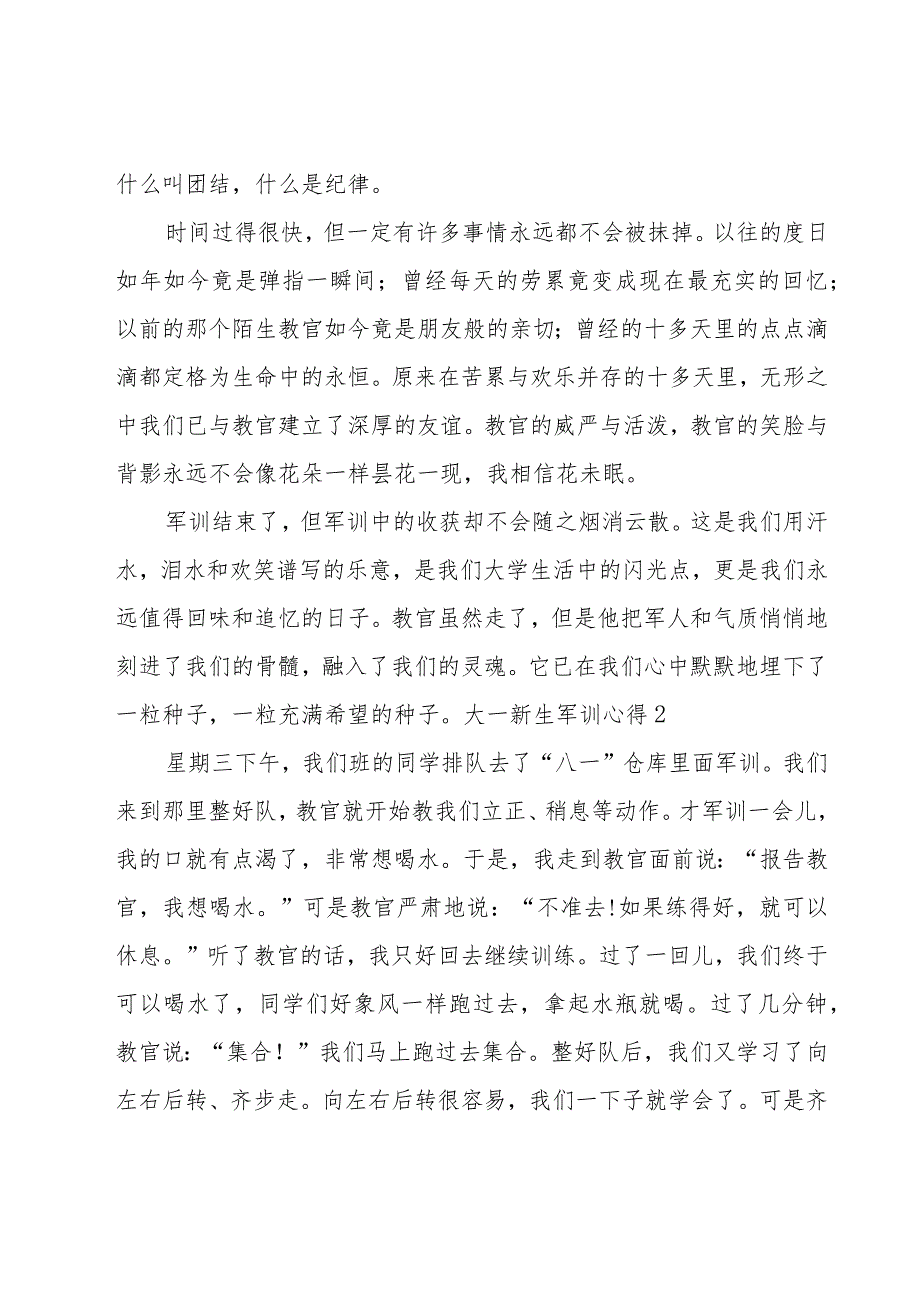 什么叫团结，什么是纪律。
时间过得很快，但一定有许多事情永远都不会被抹掉。以往的度日
如年如今竟是弹指一瞬间；曾经每天的劳累竟变成现在最充实的回忆；
以前的那个陌生教官如今竟是朋友般的亲切；曾经的十多天里的点点滴
滴都定格为生命中的永恒。原来在苦累与欢乐并存的十多天里，无形之
中我们已与教官建立了深厚的友谊。教官的威严与活泼，教官的笑脸与
背影永远不会像花朵一样昙花一现，我相信花未眠。
军训结束了，但军训中的收获却不会随之烟消云散。这是我们用汗
水，泪水和欢笑谱写的乐意，是我们大学生活中的闪光点，更是我们永
远值得回味和追忆的日子。教官虽然走了，但是他把军人和气质悄悄地
刻进了我们的骨髓，融入了我们的灵魂。它已在我们心中默默地埋下了
一粒种子，一粒充满希望的种子。大一新生军训心得2
星期三下午，我们班的同学排队去了“八一”仓库里面军训。我们
来到那里整好队，教官就开始教我们立正、稍息等动作。才军训一会儿，
我的口就有点渴了，非常想喝水。于是，我走到教官面前说：“报告教
官，我想喝水。”可是教官严肃地说：“不准去!如果练得好，就可以
休息。”听了教官的话，我只好回去继续训练。过了一回儿，我们终于
可以喝水了，同学们好象风一样跑过去，拿起水瓶就喝。过了几分钟，
教官说：“集合！”我们马上跑过去集合。整好队后，我们又学习了向
左右后转、齐步走。向左右后转很容易，我们一下子就学会了。可是齐